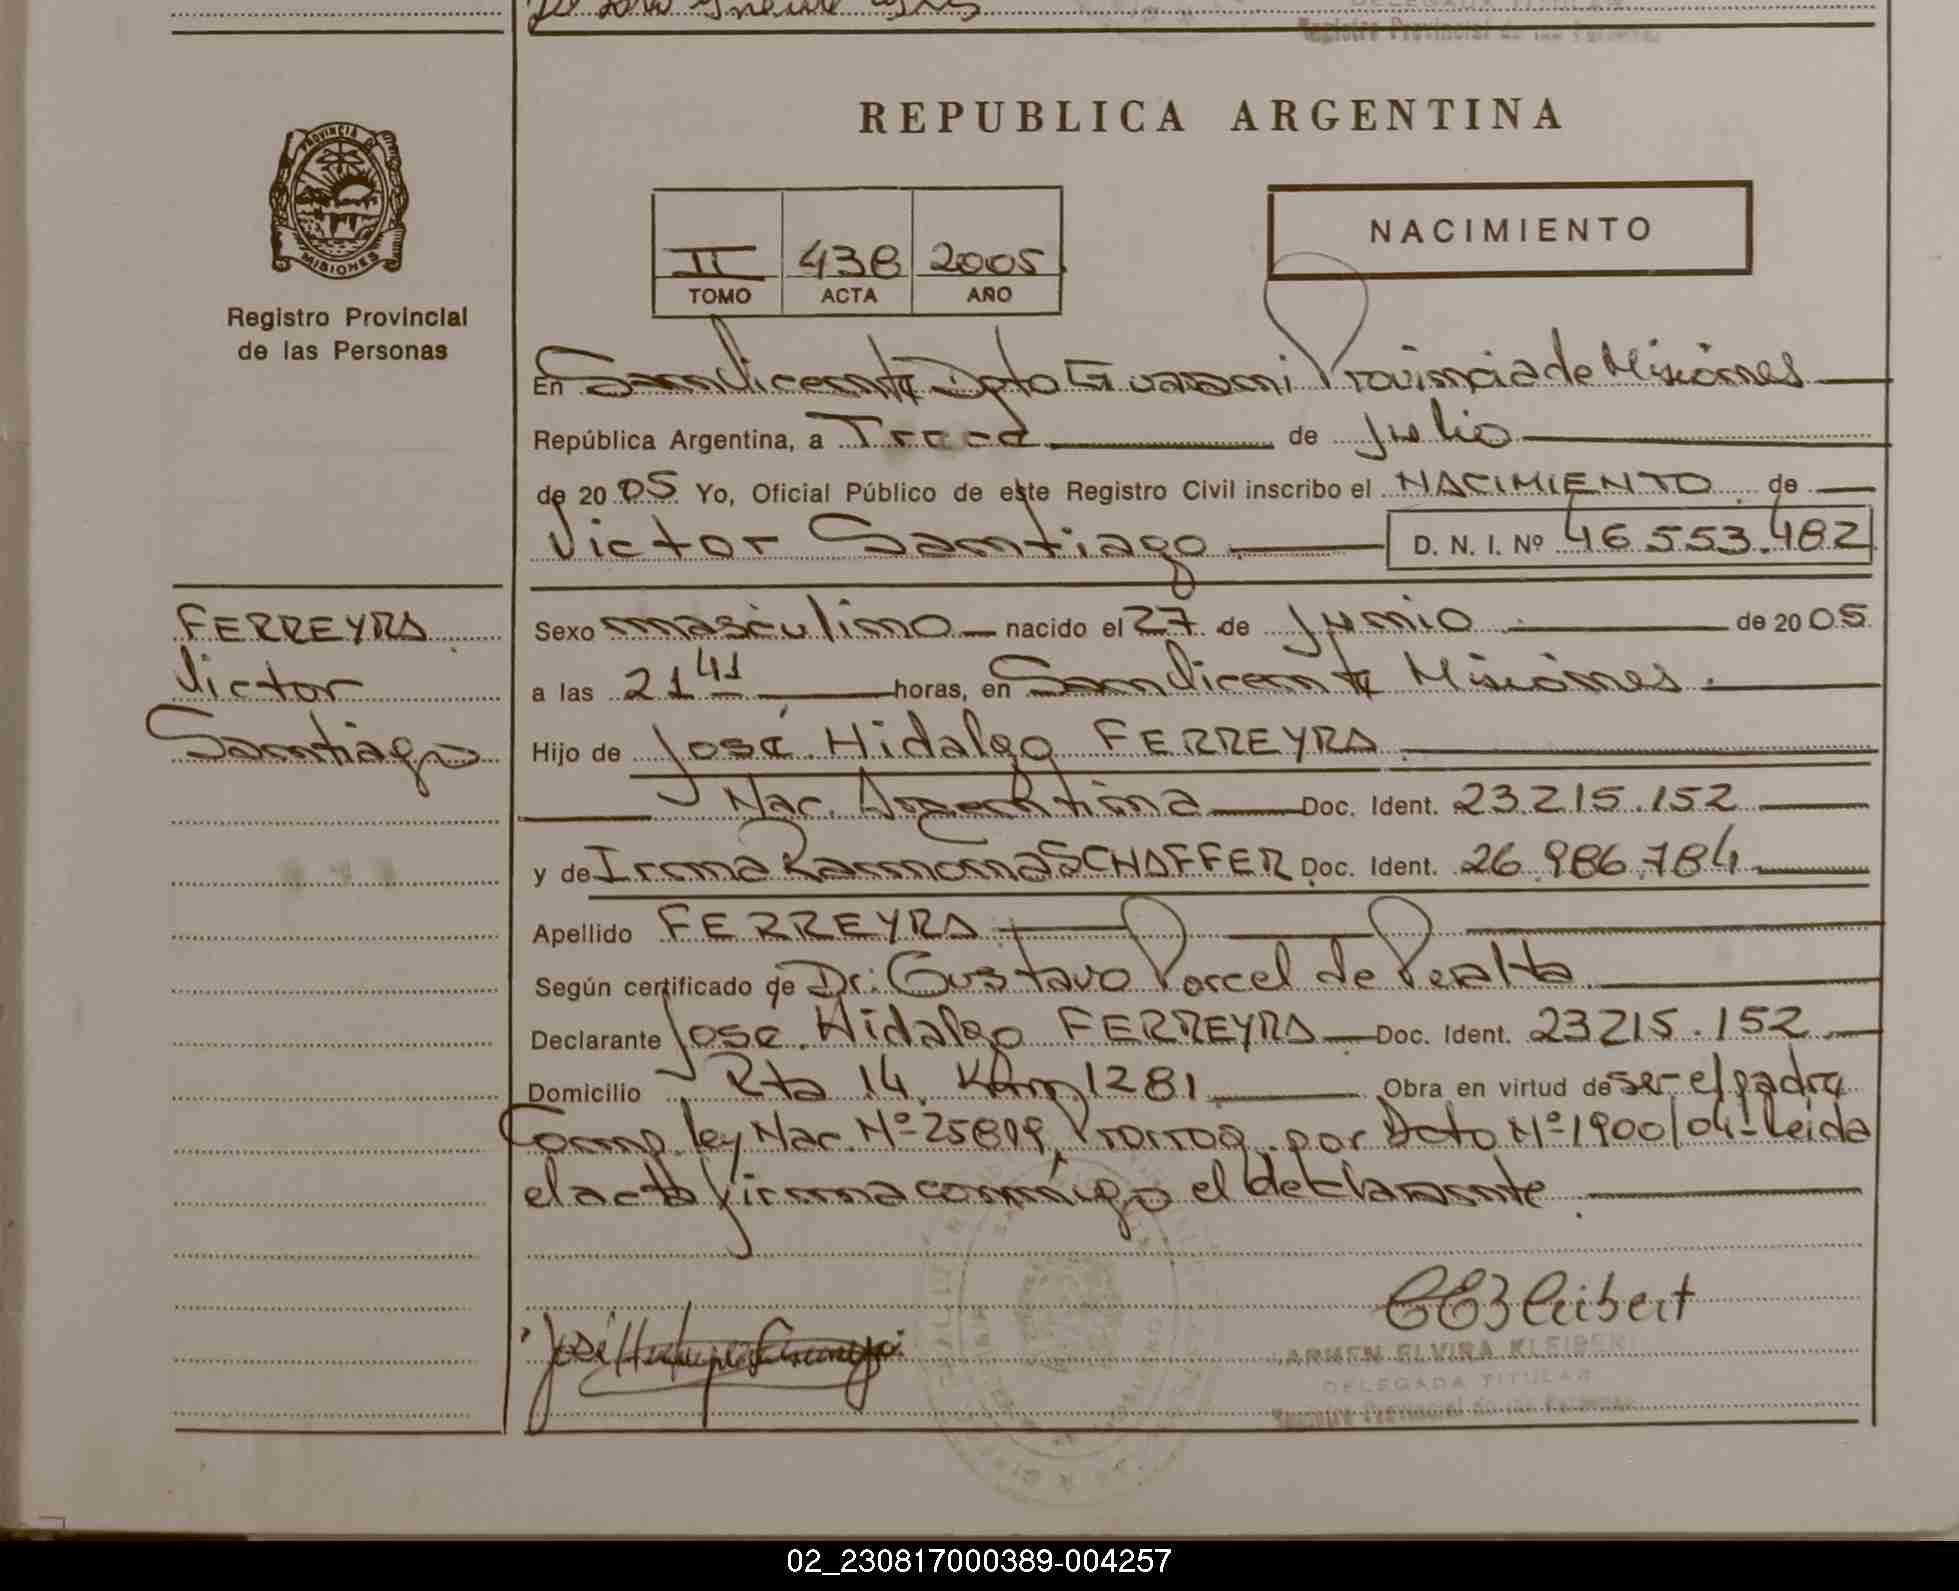 REPUBLICA ARGENTINA
PROVINCIA DE
MISIONES
Registro Provincial
de las Personas
II 438 2005
TOMO ACTA AÑO
NACIMIENTO
En San Vicente Dpto Guaraní Provincia de Misiones
República Argentina, a Trece de Julio
de 2005 Yo, Oficial Público de este Registro Civil inscribo el NACIMIENTO de
Victor Santiago D. N. I. Nº 46.553.482
FERREYRA
Victor
Santiago
Sexo masculino nacido el 27 de Junio de 2005
a las 21 41 horas, en San Vicente Misiones.
Hijo de José Hidalgo FERREYRA
Nac. Argentina Doc. Ident. 23.215.152
y de Irma Ramona SCHAFFER Doc. Ident. 26.986.784
Apellido FERREYRA
Según certificado de Dr. Gustavo Porcel de Peralta
Declarante José Hidalgo FERREYRA Doc. Ident. 23215.152
Domicilio Rta 14 Km 1281 Obra en virtud de ser el padre
Comp. ley Nac. Nº 25809, Prorrog. por Dcto Nº 1900/04 - Leida
el acta firma conmigo el declarante.
CEKleibert
ARMEN ELVIRA KLEIBER
DELEGADA TITULAR
Registro Provincial de las Personas
02_230817000389-004257